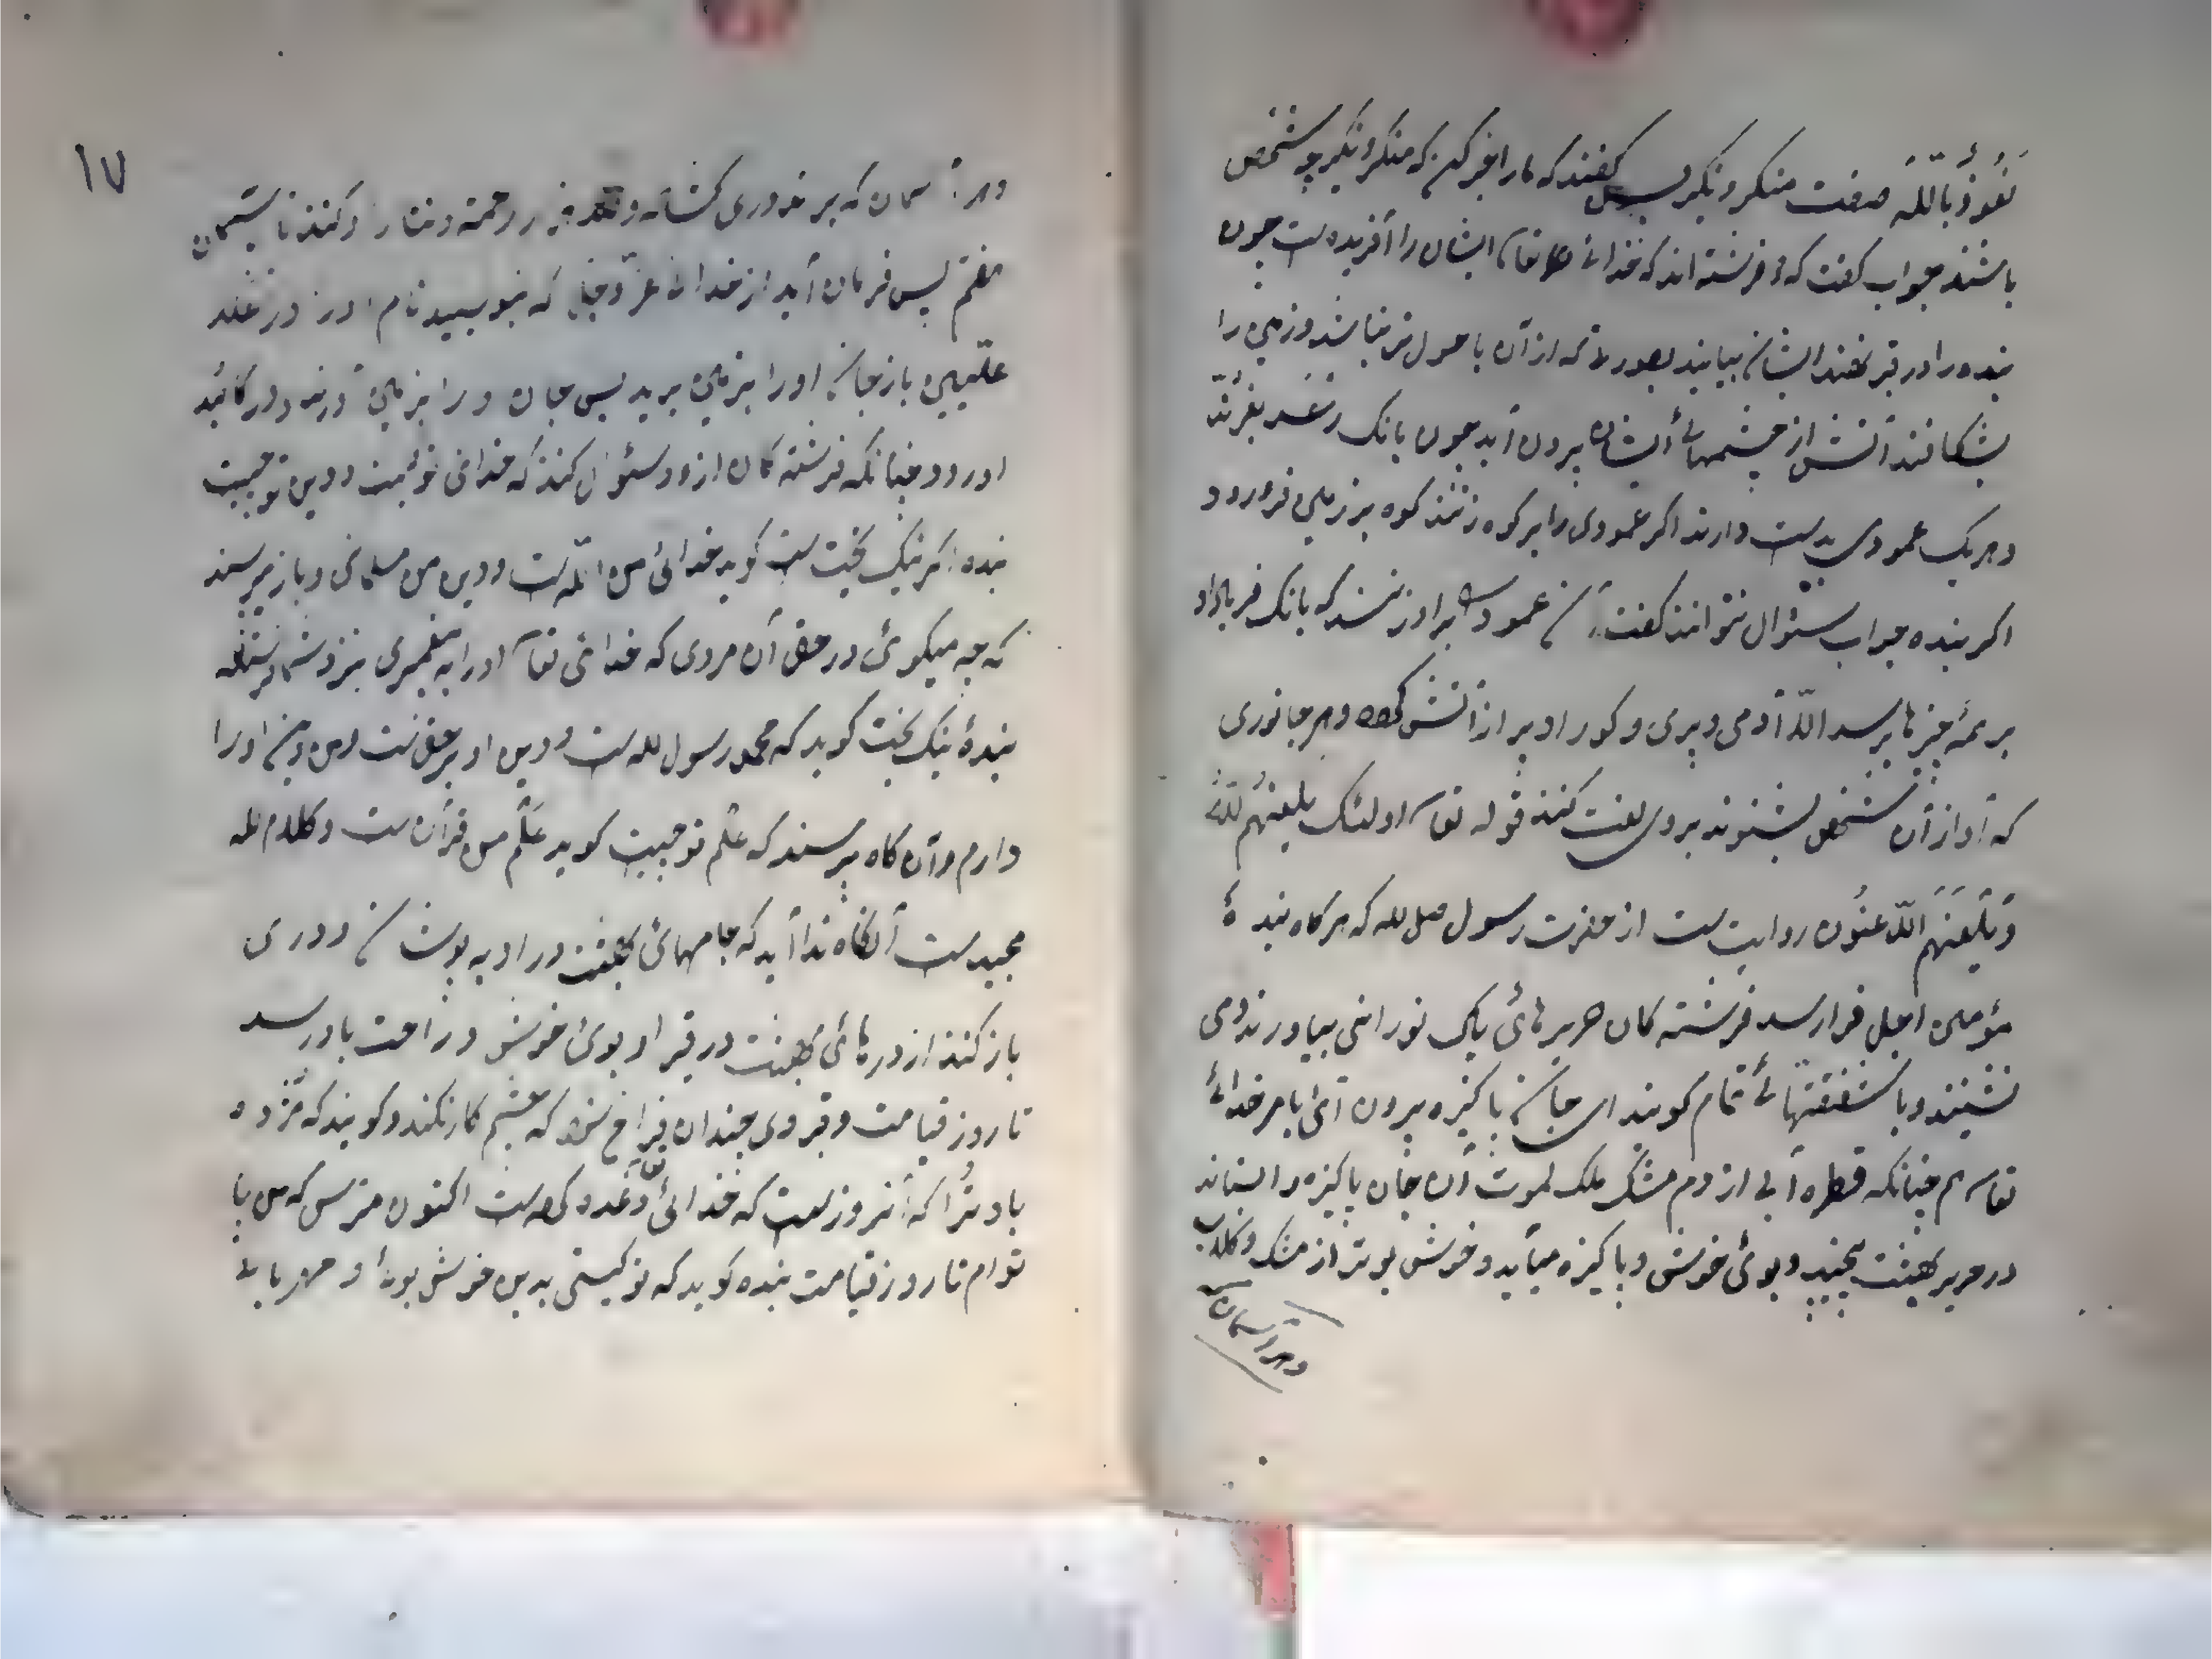 نَعُوذُ بِاللّٰهِ صفت منکر و نکیر پس کفتند که ما را خبر کن که منکر و نکیر چه شخص
باشند جواب کفت که دو فرشته اند که خدائ تعا ایشان را آفریده ست چون
بنده را در قبر نهند ایشان بیایند بصورتے که از آن با هول تر نباشد و زمین را
بشکافند آتش از چشمهائے ایشان برون آید چون بانک رعد بغرند
و هر یک عمودی بدست دارند اکر عمودی را بر کوه زنند کوه بزمین فرو رود
اکر بنده جواب سئوال نتواند کفت آن عمود را بر او زنند که بانک فریاد او
بر همه چیزها برسد الّا آدمی و پری و کور او پر از آتش و هر جانوری
که آواز آن شخص بشنوند بر وی لعنت کنند قوله تعا اولئک یلعنهم الله
وَیَلْعَنُهُمُ اللّٰاعِنُون روایت ست از حضرت رسول صلی الله که هر کاه بنده ٔ
مؤمن اجل فرا رسد فرشته کان حریرهائ پاک نورانی بیاورند و می
نشینند و با شفقتهائے تمام کویند ای جان پاکیزه برون آئ بامر خدائے
تعا هم چنانکه قطره آبی از دم مشک ملک لموت آن جان پاکیزه را ستاند
در حریر بهشت پیچند و بوئ خوش و پاکیزه میآید و خوش بوتر از مشک و کلاب
و هر آسمان که
۱۷
و هر آسمان که برند دری کشاده و رحمة و نثار کنند تا بآسمان
هفتم پس فرمان آید از خدائ عزّ و جلّ که بنویسید نام او را در
علّیین باز جان او را بزمین برید پس جان و را بزمین آورند و در کالبد
او رود چنانکه فرشته کان ازو سئوال کنند که خدائ تو کیست و دین تو چیست
بنده اکر نیک بخت ست کوید خدائی من اللّه ست و دین من مسلمانی و باز پرسند
که چه میکوئ در حق آن مردی که خدائ تعا او را به پیغمبری بنزد شما فرستاده
بندهٔ نیک بخت کوید که محمد رسول لله ست و دین او بر حق ست و من او را
دارم و آن کاه پرسند که علم تو چیست کوید علم من قرآن ست و کلام الله
مجید ست آنکاه ندا آید که جامهائ بهشت در او به پوشان و دری
باز کنند از درهائ بهشت در قبر او بوئ خوش و راحت باو رسد
تا روز قیامت و قبر وی چندان فراخ شود که چشم کار نکند و کویند که مژده
باد ترا که آن روزست که خدائ تعا وعده کرده ست اکنون مترس که من با
توام تا روز قیامت بنده کوید که تو کیستی بدین خوش بوئ و مهربانے